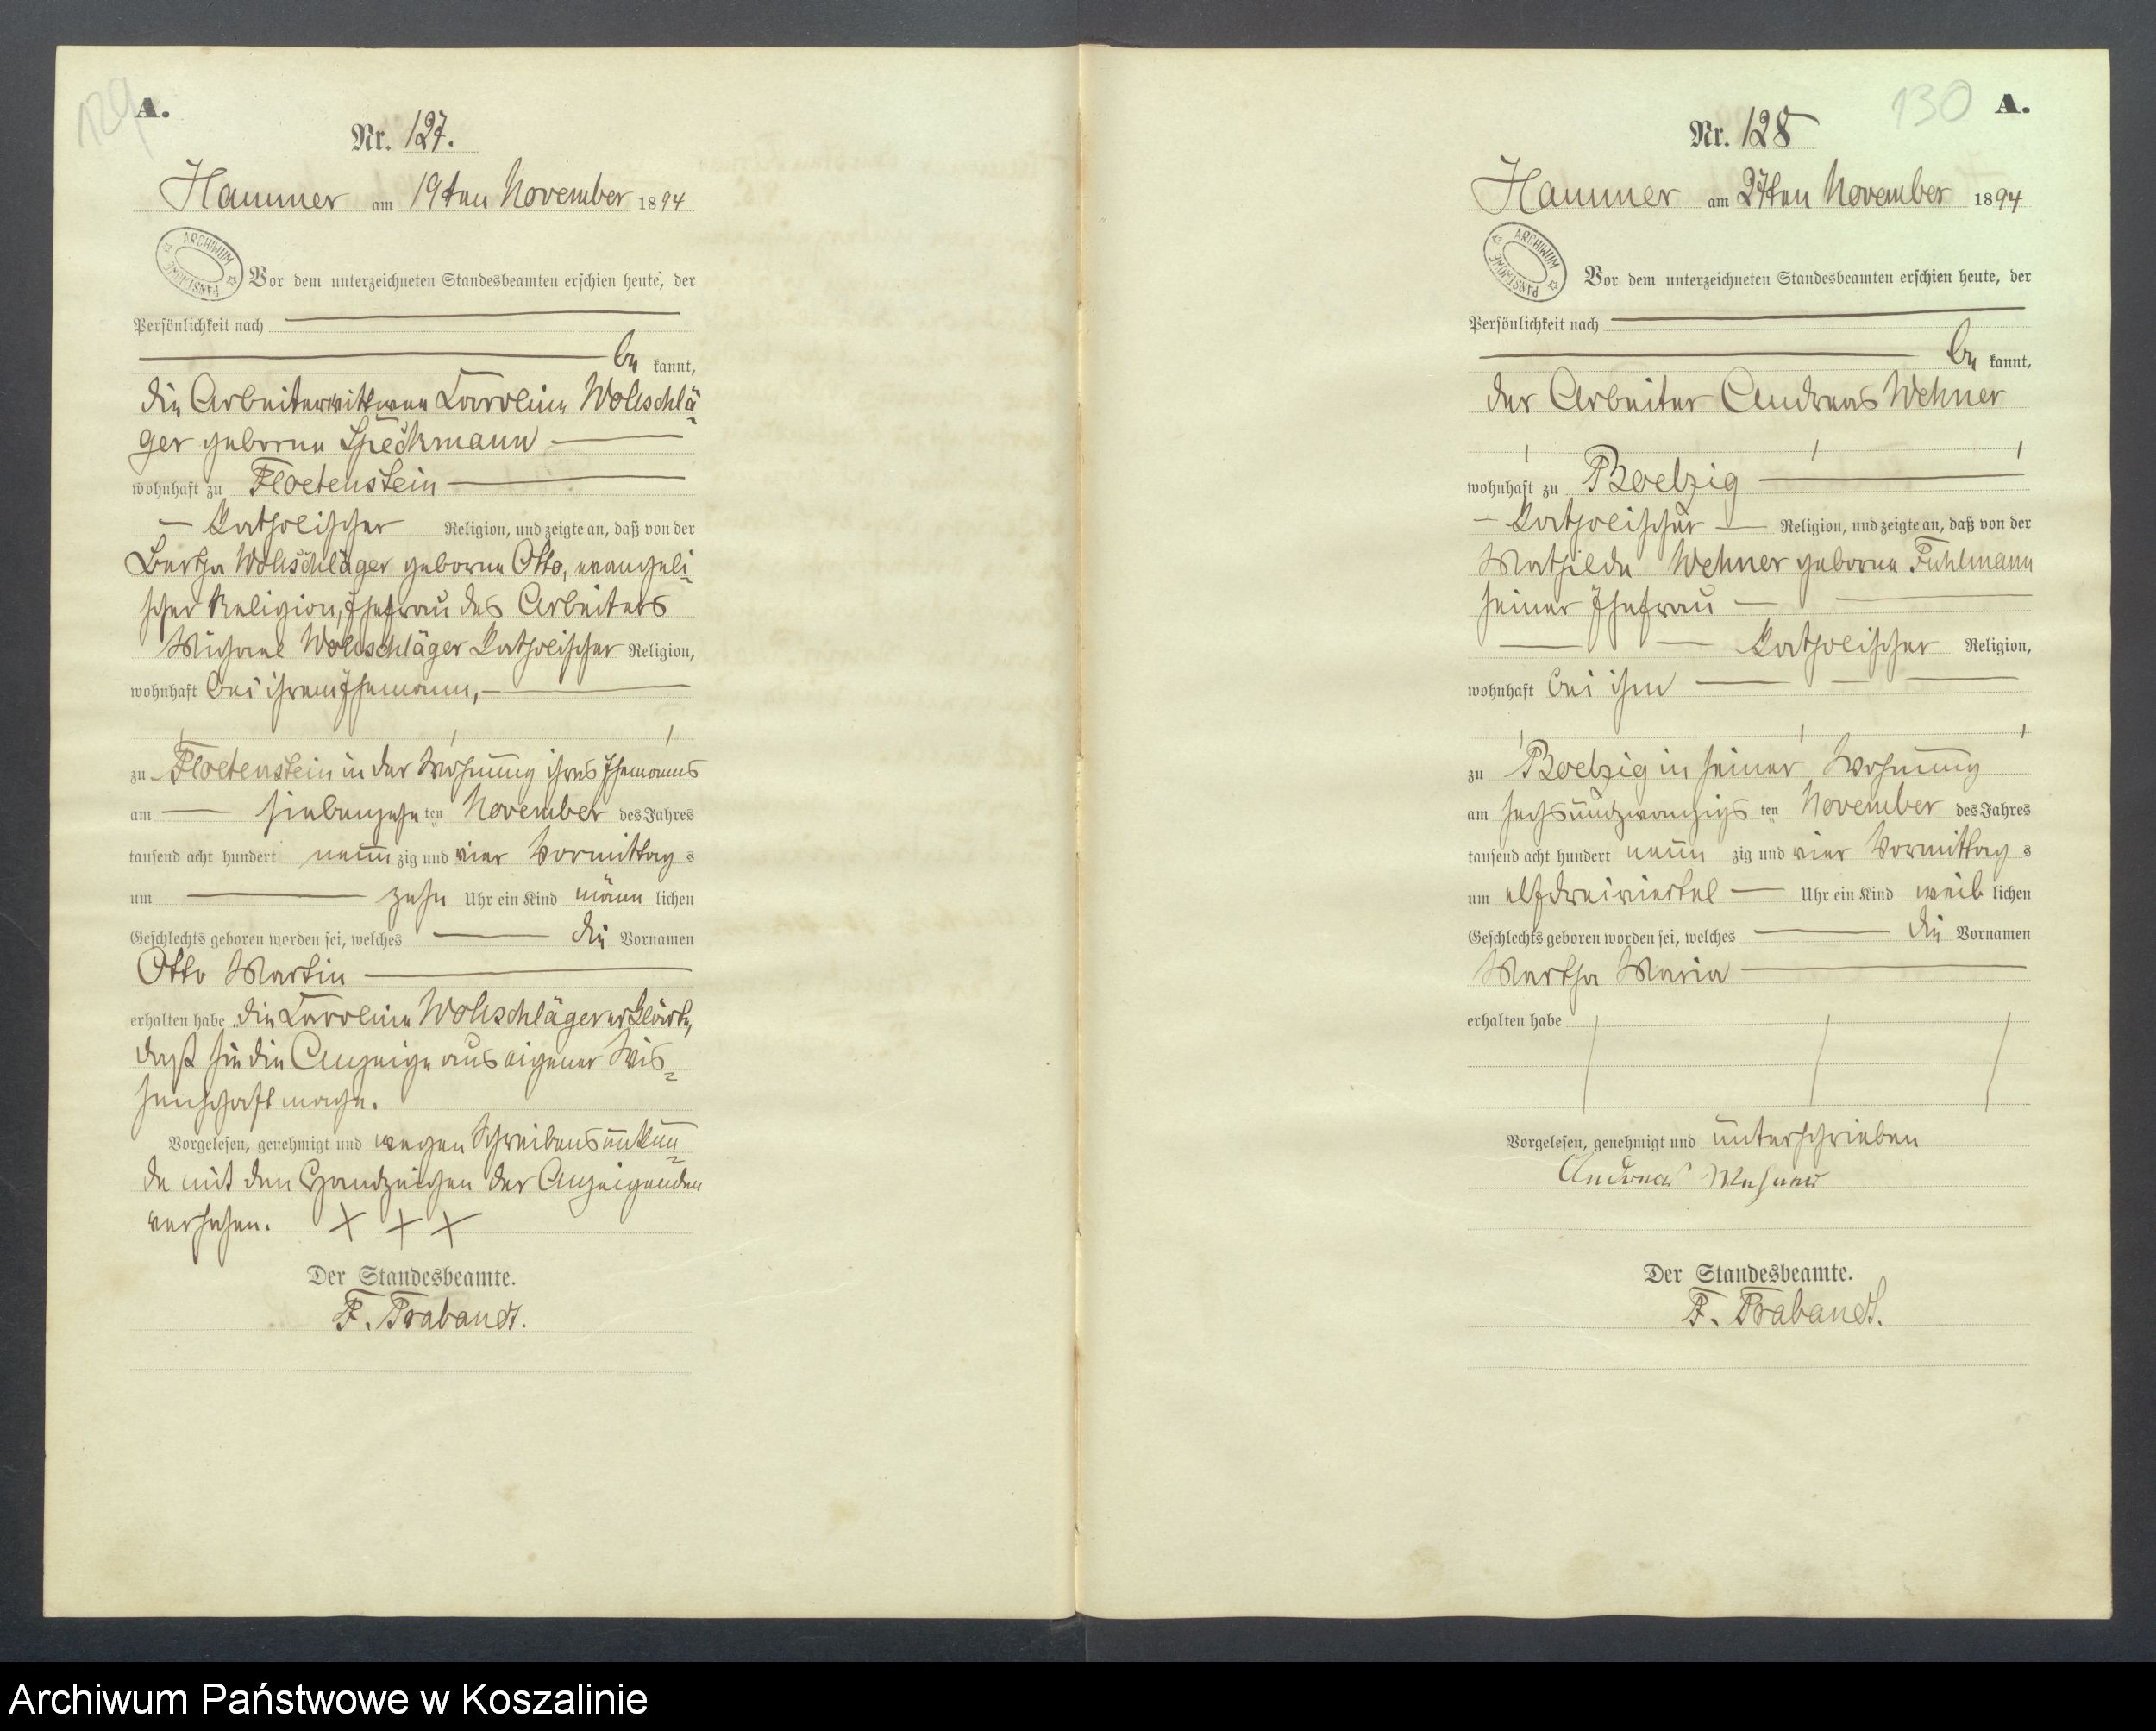 129
A.
Nr. 127.
Hammer am 19ten November 1894
ARCHIWUM PAŃSTWOWE
Vor dem unterzeichneten Standesbeamten erschien heute, der
Persönlichkeit nach
be kannt,
die Arbeiterwittwe Caroline Wollschlä-
ger geborne Speckmann
wohnhaft zu Floetenstein
katholischer Religion, und zeigte an, daß von der
Bertha Wollschläger geborne Otto, evangeli-
scher Religion, Ehefrau des Arbeiters
Michael Wollschläger katholischer Religion,
wohnhaft bei ihrem Ehemann,
zu Floetenstein in der Wohnung ihres Ehemanns
am siebenzehn ten November des Jahres
tausend acht hundert neun zig und vier Vormittag s
um zehn Uhr ein Kind männ lichen
Geschlechts geboren worden sei, welches die Vornamen
Otto Martin
erhalten habe, die Caroline Wollschläger erklärte,
daß sie die Anzeige aus eigener Wis-
senschaft mache.
Vorgelesen, genehmigt und wegen Schreibensunkun-
de mit den Handzeichen der Anzeigenden
versehen. + + +
Der Standesbeamte.
F. Trabandt.
130
A.
Nr. 128
Hammer am 27ten November 1894
ARCHIWUM PAŃSTWOWE
Vor dem unterzeichneten Standesbeamten erschien heute, der
Persönlichkeit nach
be kannt,
der Arbeiter Andreas Wehner
wohnhaft zu Boelzig
katholischer Religion, und zeigte an, daß von der
Mathilde Wehner geborne Fuhlmann
seiner Ehefrau
katholischer Religion,
wohnhaft bei ihm
zu Boelzig in seiner Wohnung
am sechsundzwanzigs ten November des Jahres
tausend acht hundert neun zig und vier Vormittag s
um elfdreiviertel Uhr ein Kind weib lichen
Geschlechts geboren worden sei, welches die Vornamen
Martha Maria
erhalten habe
Vorgelesen, genehmigt und unterschrieben
Andreas Wehner
Der Standesbeamte.
F. Trabandt.
Archiwum Państwowe w Koszalinie